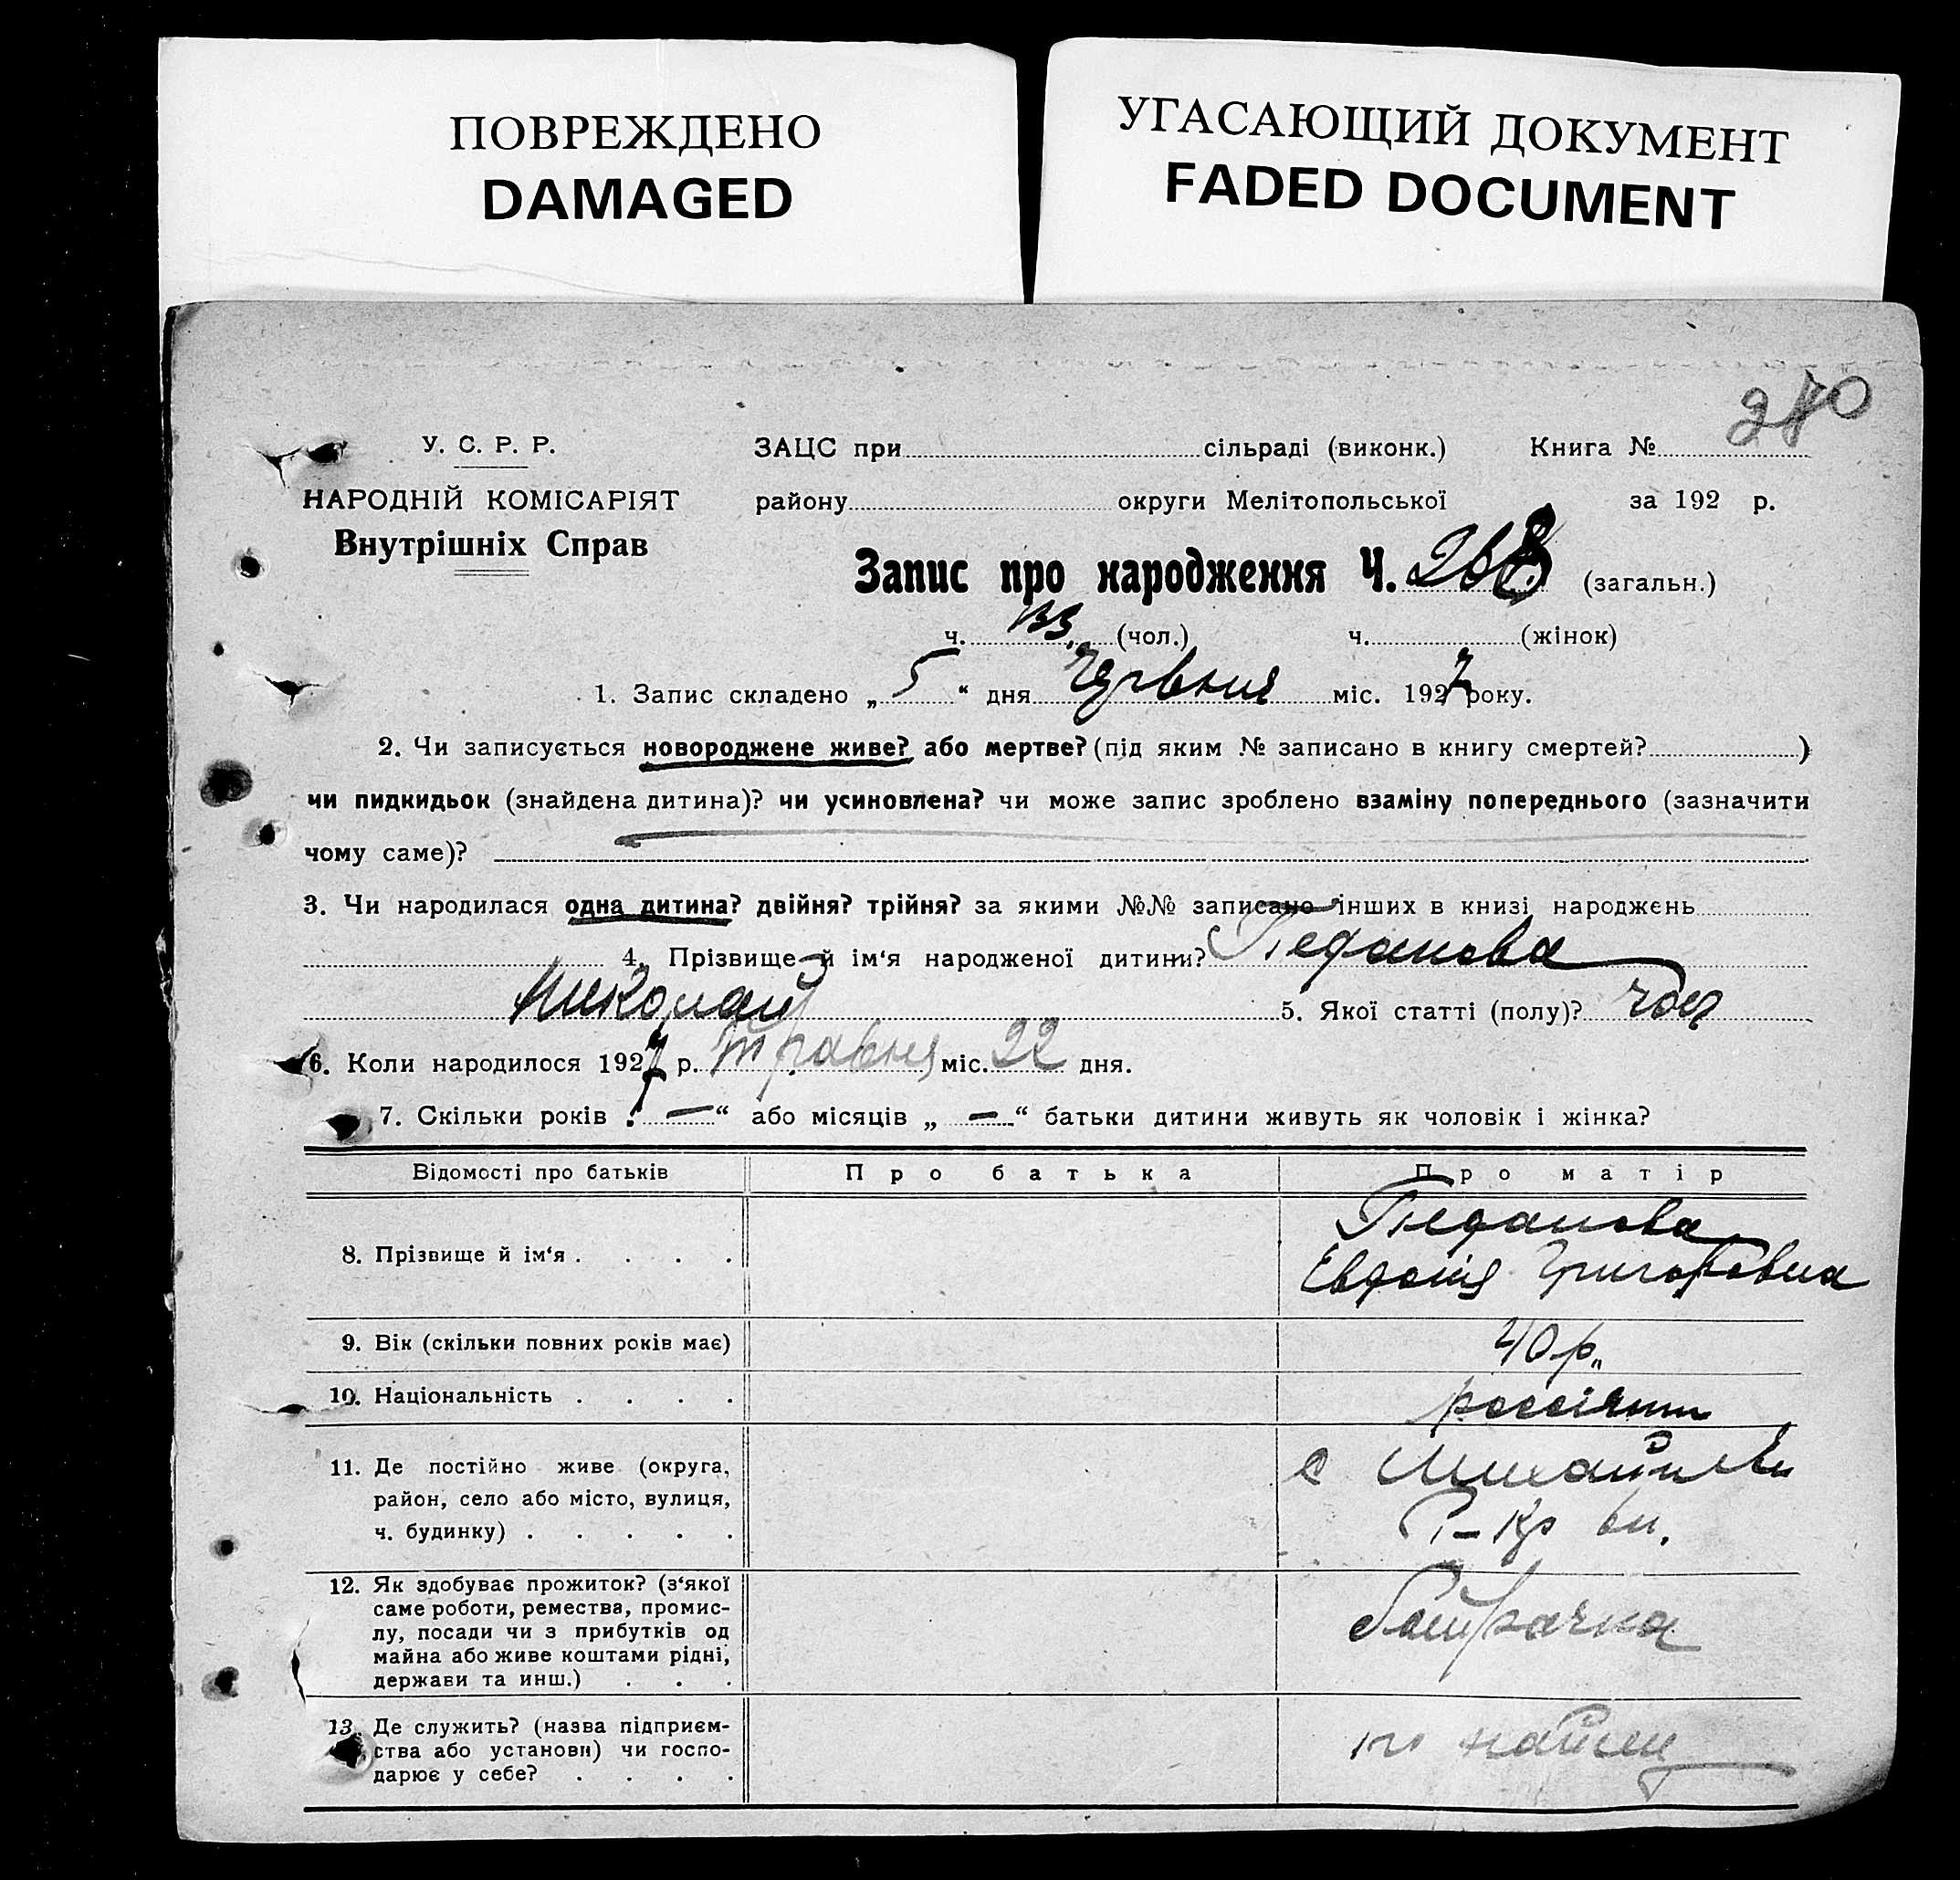 ПОВРЕЖДЕНО
DAMAGED
УГАСАЮЩИЙ ДОКУМЕНТ
FADED DOCUMENT
270
У. С. Р. Р.
НАРОДНІЙ КОМІСАРІЯТ
Внутрішніх Справ
ЗАЦС при сільраді (виконк.) Книга №
району округи Мелітопольської за 192 р.
Запис про народження Ч. 268 (загальн.)
ч. 133 (чол.) ч. (жінок)
1. Запис складено „ 5 “ дня Червня міс. 1927 року.
2. Чи записується новороджене живе? або мертве? (під яким № записано в книгу смертей? )
чи пидкидьок (знайдена дитина)? чи усиновлена? чи може запис зроблено взаміну попереднього (зазначити
чому саме)?
3. Чи народилася одна дитина? двійня? трійня? за якими №№ записано інших в книзі народжень
4. Прізвище й ім‘я народженої дитини? Педанова
Николай 5. Якої статті (полу)? чол
6. Коли народилося 1927 р. травня міс. 22 дня.
7. Скільки років „ — “ або місяців „ — “ батьки дитини живуть як чоловік і жінка?
Відомості про батьків Про батька Про матір
8. Прізвище й ім‘я . . . . Педанова
Евдокія Григоровна
9. Вік (скільки повних років має) 40 р.
10. Національність . . . . россіянк
11. Де постійно живе (округа,
район, село або місто, вулиця,
ч. будинку) . . . . .
с Михайлівк
Кр вул.
12. Як здобуває прожиток? (з‘якої
саме роботи, ремества, промис-
лу, посади чи з прибутків од
майна або живе коштами рідні,
держави та инш.) . . .
батрачка
13. Де служить? (назва підприєм-
ства або установи) чи госпо-
дарює у себе? . . . .
по найму